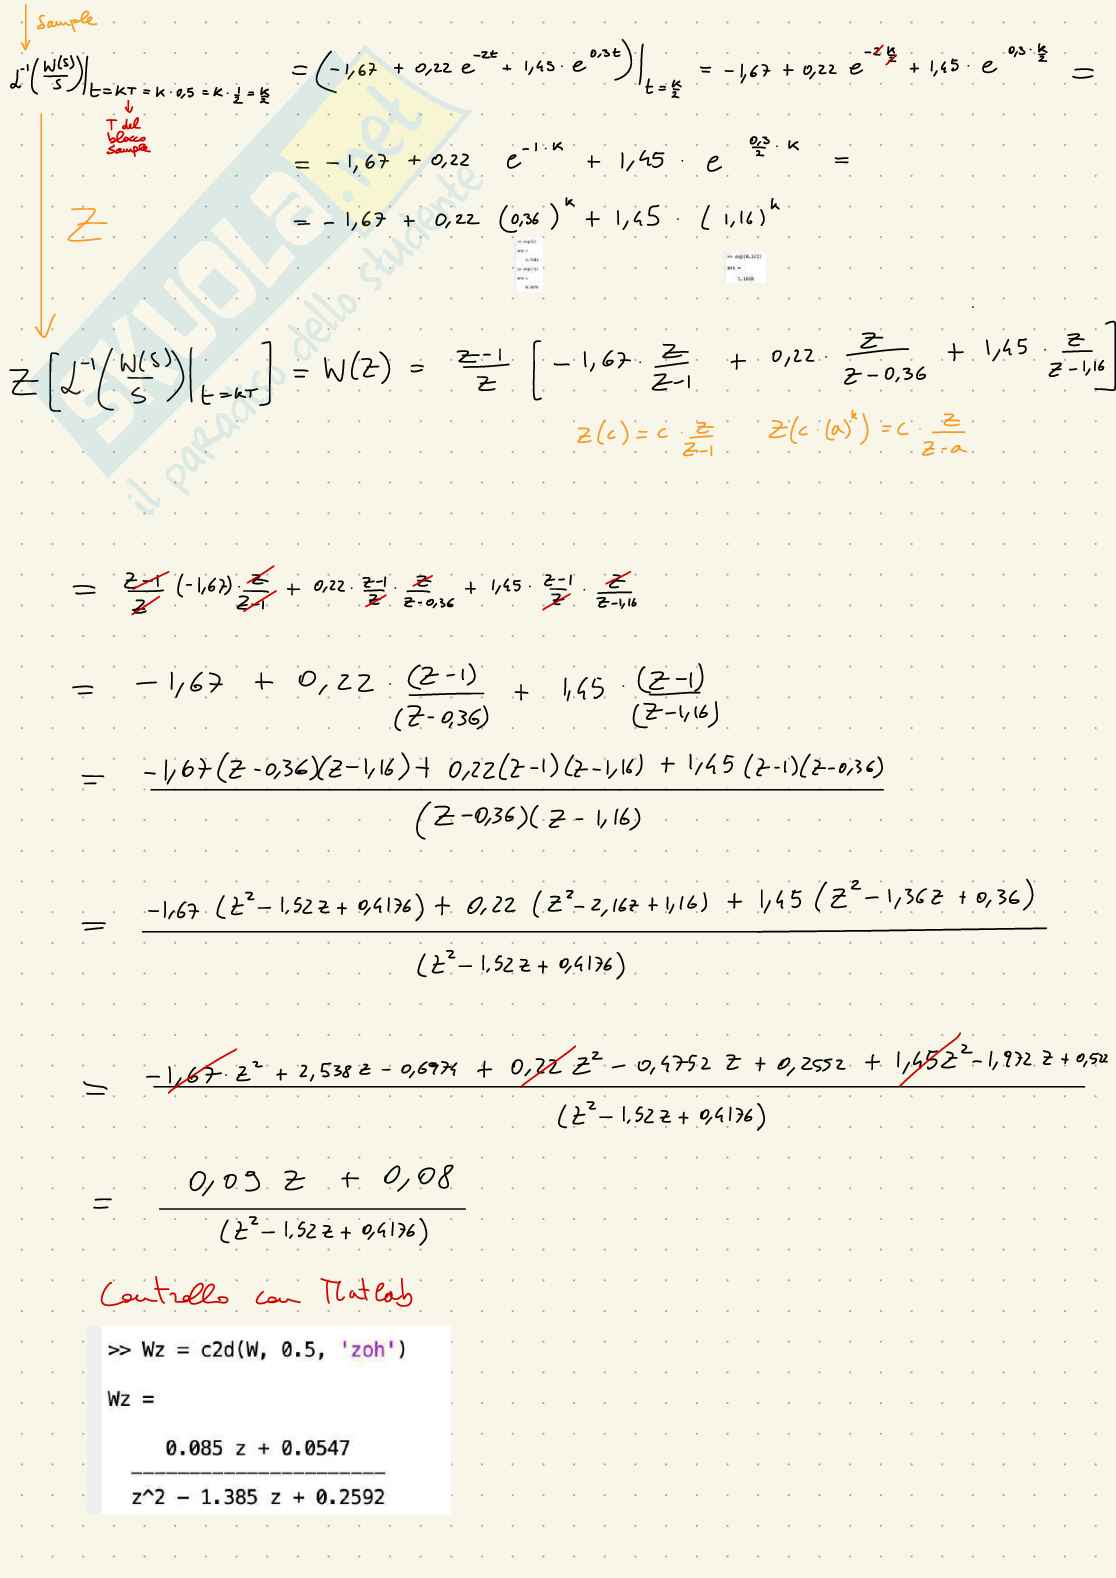 Sample
ℒ⁻¹(W(s)/s)|t=KT=K·0,5=K·1/2=K/2 = (-1,67 + 0,22 e^(-2t) + 1,45 · e^(0,3t))|t=K/2 = -1,67 + 0,22 e^(-2 K/2) + 1,45 · e^(0,3·K/2) =
T del
blocco
Sample
= -1,67 + 0,22 e^(-1·K) + 1,45 · e^(0,3/2 · K) =
Z
= -1,67 + 0,22 (0,36)^K + 1,45 · (1,16)^K
Z[ℒ⁻¹(W(s)/s)|t=KT] = W(Z) = Z-1/Z [-1,67 · Z/Z-1 + 0,22 · Z/Z-0,36 + 1,45 · Z/Z-1,16]
Z(c) = c · Z/Z-1 Z(c·(a)^K) = c · Z/Z-a
= Z-1/Z (-1,67) · Z/Z-1 + 0,22 · Z-1/Z · Z/Z-0,36 + 1,45 · Z-1/Z · Z/Z-1,16
= -1,67 + 0,22 · (Z-1)/(Z-0,36) + 1,45 · (Z-1)/(Z-1,16)
= -1,67(Z-0,36)(Z-1,16) + 0,22(Z-1)(Z-1,16) + 1,45(Z-1)(Z-0,36)
(Z-0,36)(Z-1,16)
= -1,67 (Z²-1,52Z+0,4176) + 0,22 (Z²-2,16Z+1,16) + 1,45 (Z²-1,36Z+0,36)
(Z²-1,52Z+0,4176)
= -1,67·Z² + 2,538Z - 0,6974 + 0,22 Z² - 0,4752 Z + 0,2552 + 1,45Z² - 1,972 Z + 0,522
(Z²-1,52Z+0,4176)
= 0,09 Z + 0,08
(Z²-1,52Z+0,4176)
Controllo con Matlab
>> Wz = c2d(W, 0.5, 'zoh')
Wz =
0.085 z + 0.0547
----------------------
z^2 - 1.385 z + 0.2592
SKUOLA.net
il paradiso dello studente